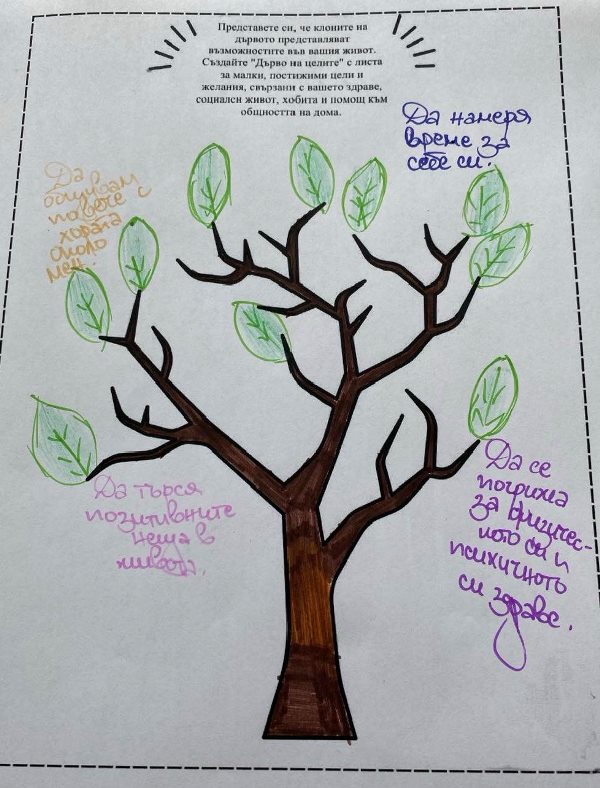 Представете си, че клоните на
дървото представляват
възможностите във вашия живот.
Създайте "Дърво на целите" с листа
за малки, постижими цели и
желания, свързани с вашето здраве,
социален живот, хобита и помощ към
общността на дома.
Да намеря
време за
себе си.
Да
общувам
повече с
хората
около
мен.
Да търся
позитивните
неща в
живота.
Да се
погрижа
за физичес-
кото си и
психичното
си здраве.